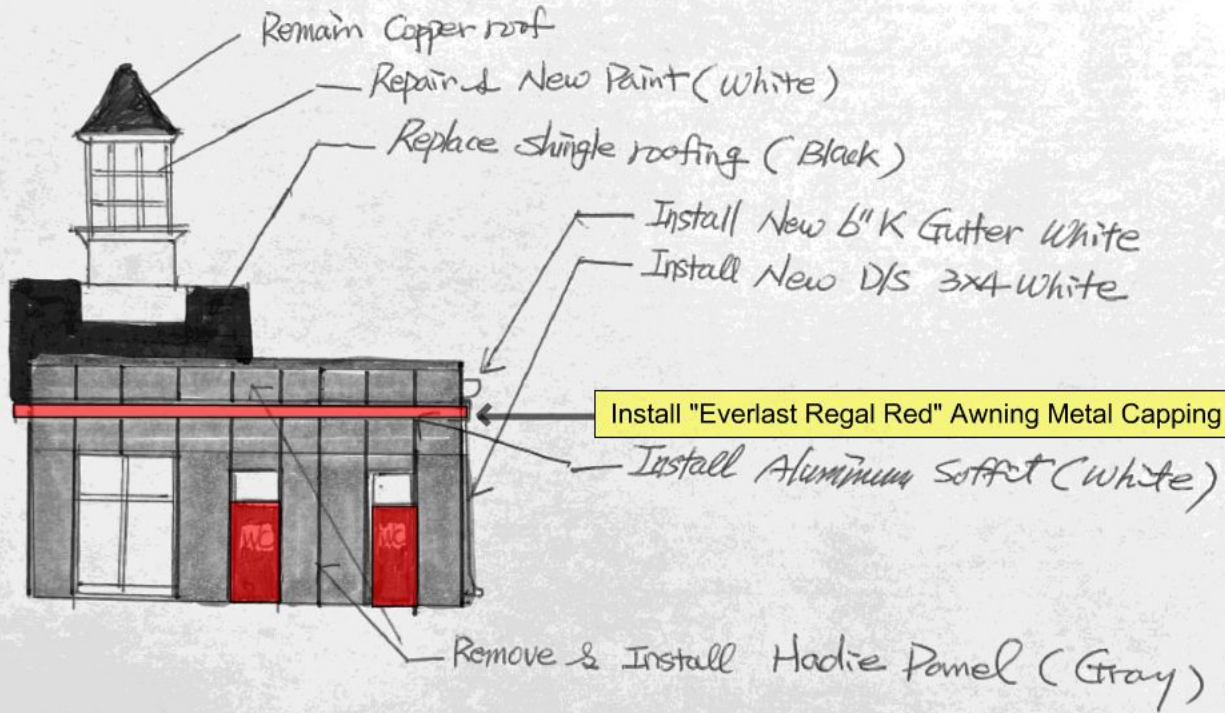 Remain Copper roof
Repair & New Paint (White)
Replace shingle roofing (Black)
Install New 6" K Gutter White
Install New D/S 3x4 White
Install "Everlast Regal Red" Awning Metal Capping
Install Aluminum Soffit (White)
WC WC
Remove & Install Hadie Panel (Gray)